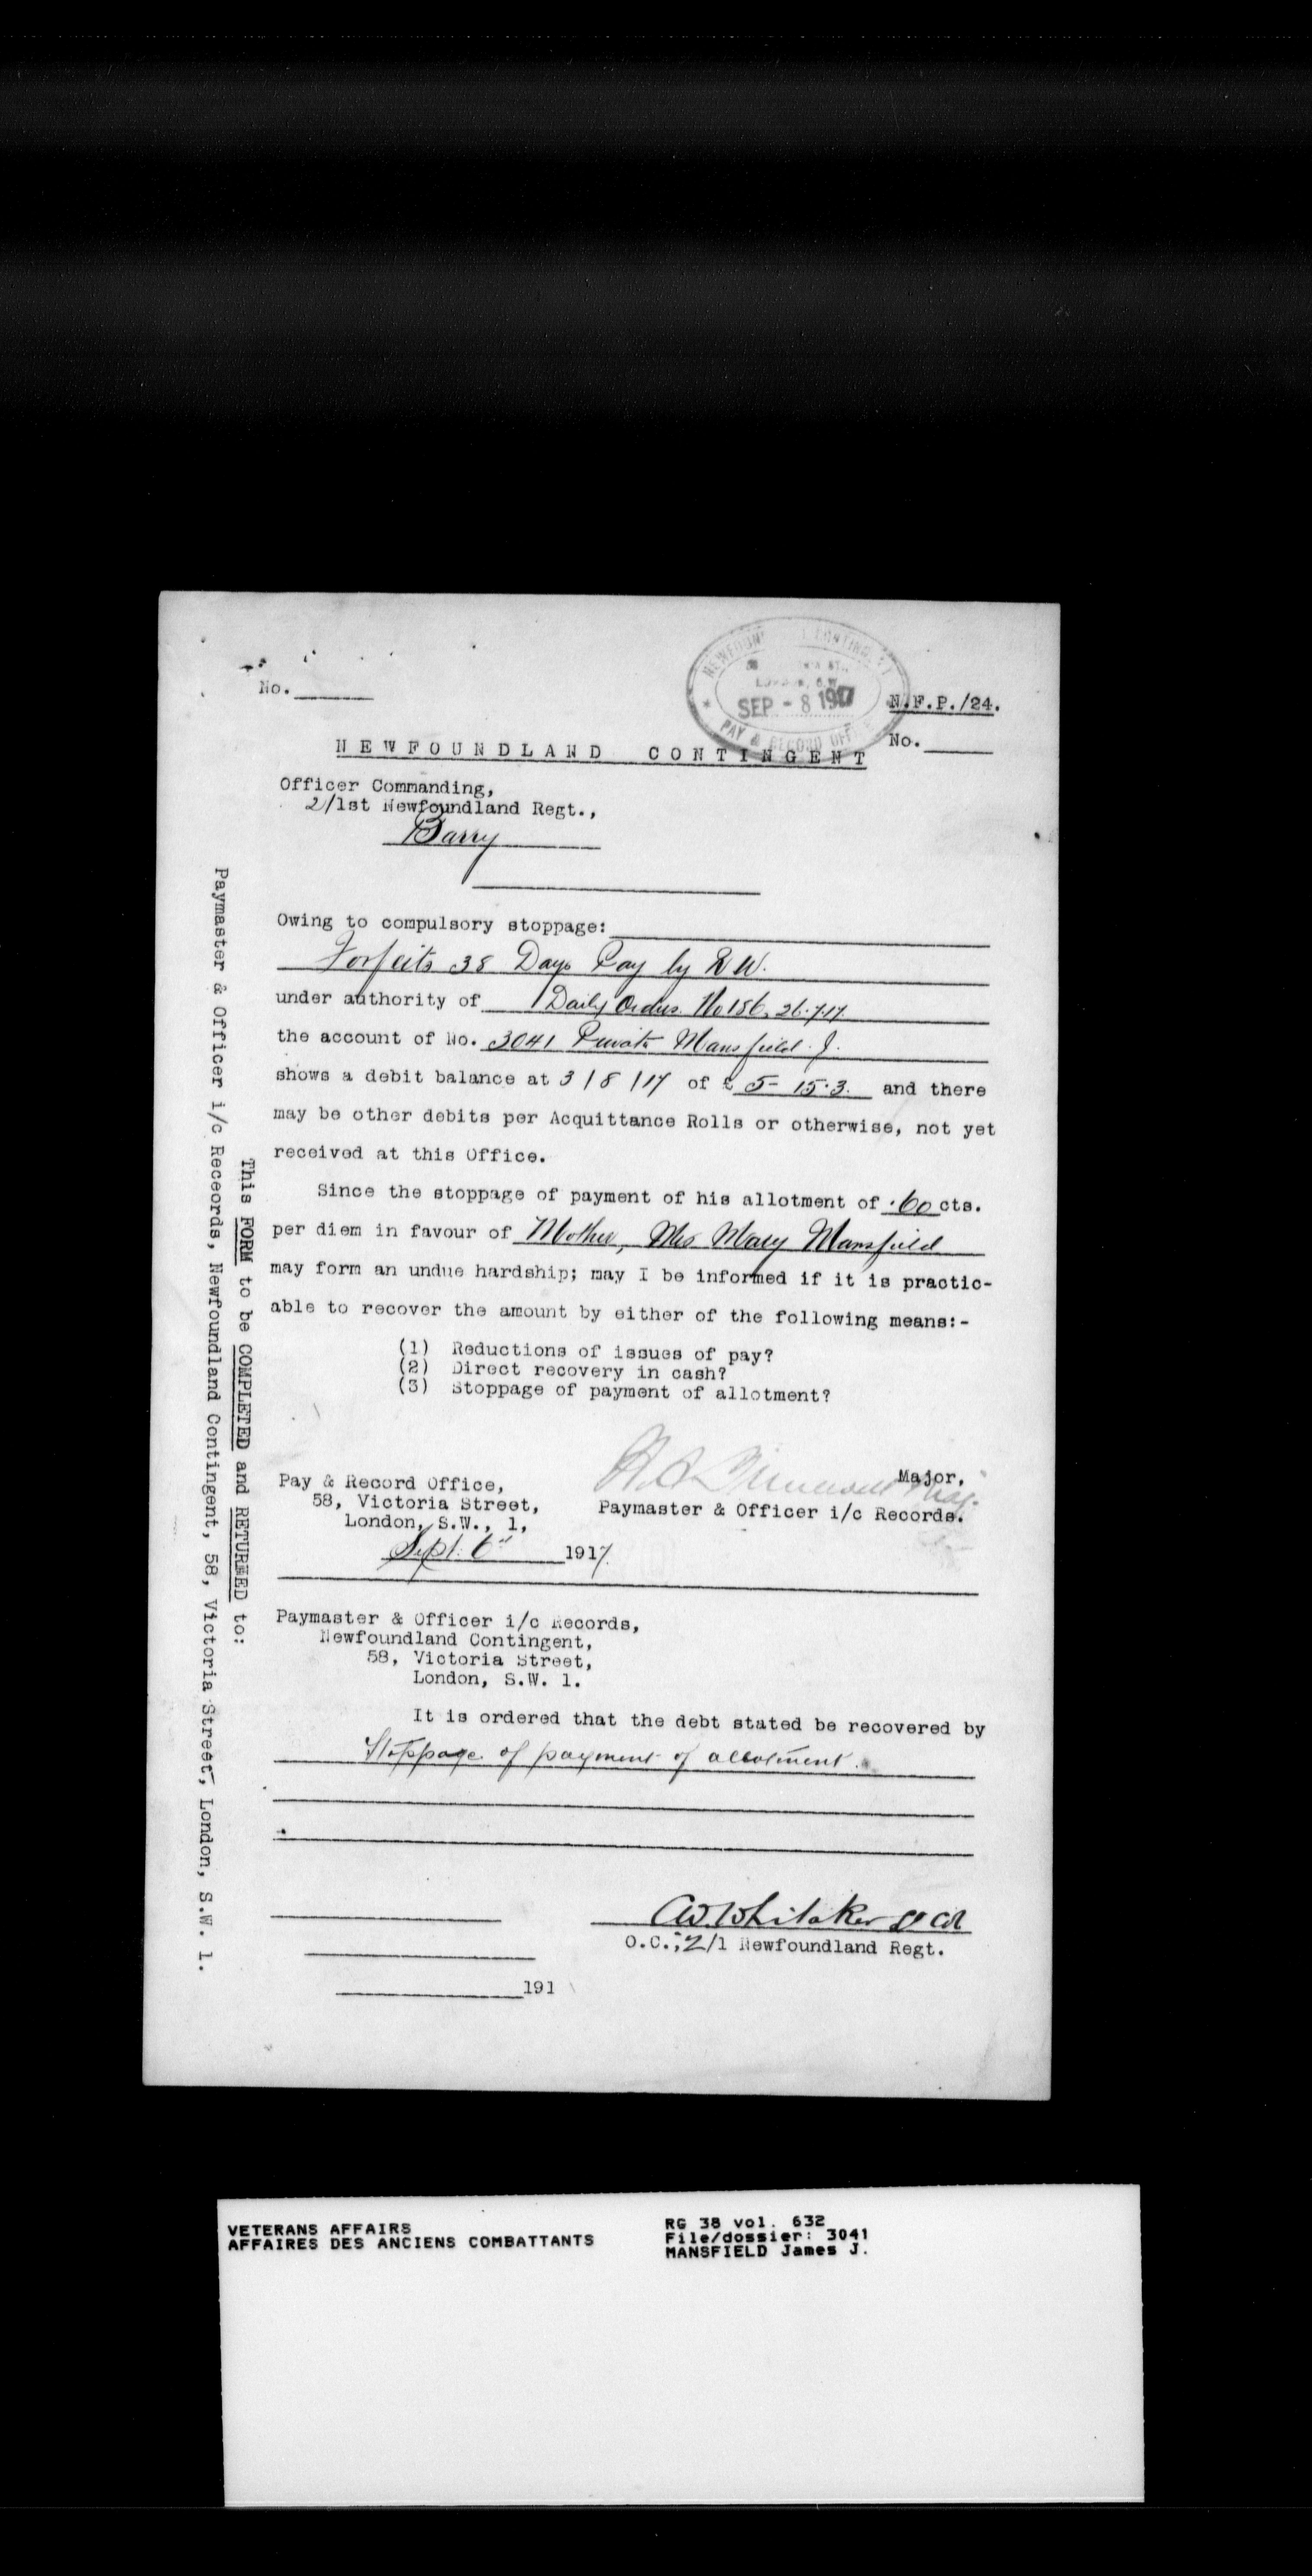 No.
NEWFOUN CONTING T
ST.,
LONDON, S.W.
SEP - 8 1917
PAY & RECORD OFF
N.F.P./24.
No.
NEWFOUNDLAND CONTINGENT
Officer Commanding,
2/1st Newfoundland Regt.,
Barry
Owing to compulsory stoppage:
Forfeits 38 Days Pay by R.W.
under authority of Daily Orders No 186, 26.7.17
the account of No. 3041 Private Mansfield. J.
shows a debit balance at 3/8/17 of £ 5-15.3. and there
may be other debits per Acquittance Rolls or otherwise, not yet
received at this Office.
Since the stoppage of payment of his allotment of .60 cts.
per diem in favour of Mother, Mrs Mary Mansfield
may form an undue hardship; may I be informed if it is practic-
able to recover the amount by either of the following means:-
(1) Reductions of issues of pay?
(2) Direct recovery in cash?
(3) Stoppage of payment of allotment?
Major,
Pay & Record Office,
58, Victoria Street,
London, S.W., 1,
Paymaster & Officer i/c Records.
Sept. 6th 1917.
Paymaster & Officer i/c Records,
Newfoundland Contingent,
58, Victoria Street,
London, S.W. 1.
It is ordered that the debt stated be recovered by
Stoppage of payment of allotment.
CW. Whitaker Lt Col
O.C., 2/1 Newfoundland Regt.
191
This FORM to be COMPLETED and RETURNED to:
Paymaster & Officer i/c Receords, Newfoundland Contingent, 58, Victoria Street, London, S.W. 1.
VETERANS AFFAIRS
AFFAIRES DES ANCIENS COMBATTANTS
RG 38 vol. 632
File/dossier: 3041
MANSFIELD James J.